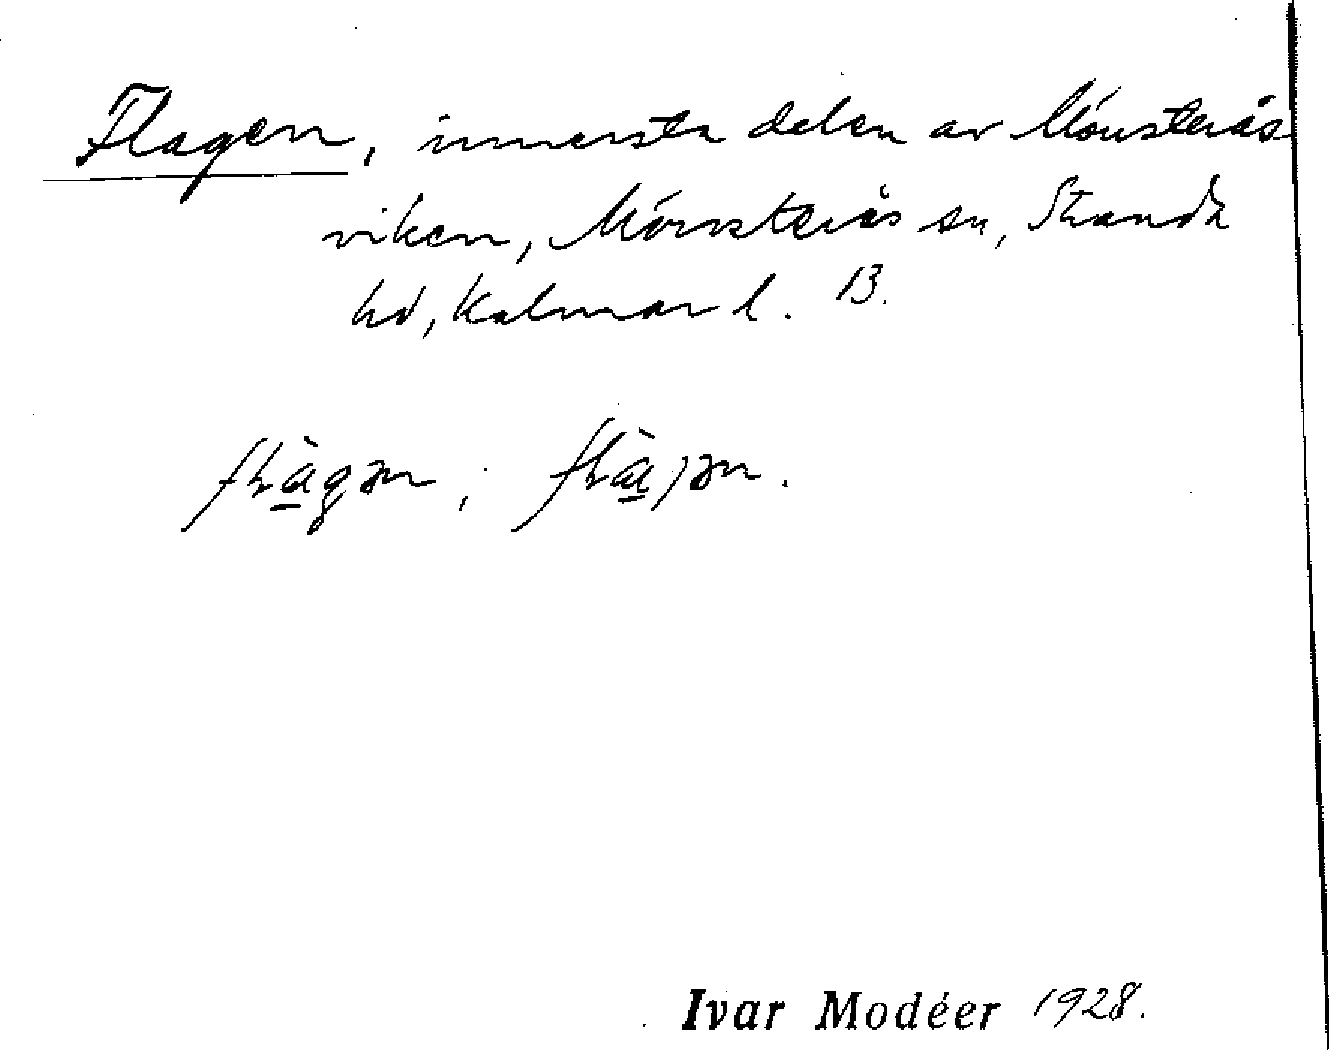 Flagen, innersta delen av Mönsterås
viken, Mönsterås sn, Stranda
hd, Kalmar l. 13.
flàgən; flàjən.
Ivar Modéer 1928.